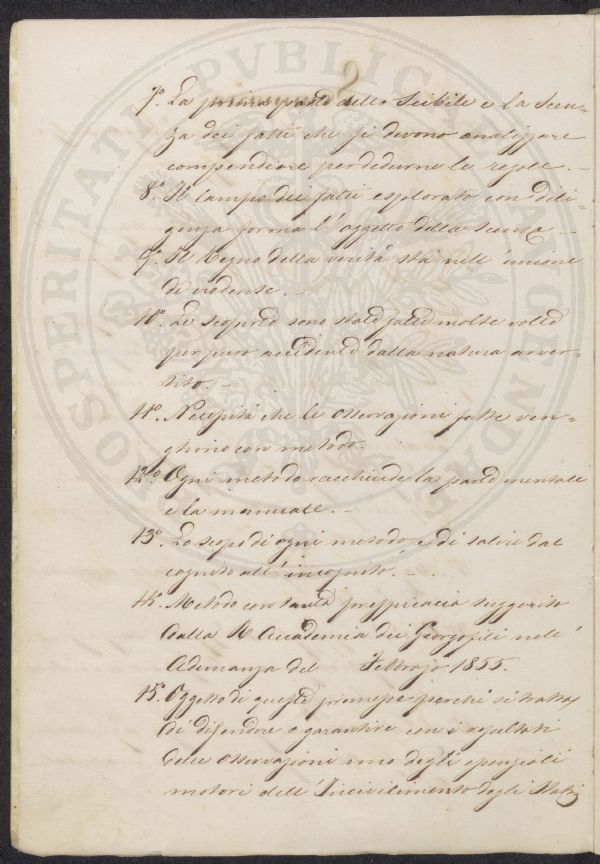 7.° La prima parte dello Scibile e la Scen=
za dei fatti che si devono analizzare
compendiare per dedurne le regole. -
8.° Il campo dei fatti esplorato con dili=
genza forma l'oggetto della Scenza -
9.° Il Regno della verità sta nell'unione
di evidense. -
10.° Le scoperte sono state fatte molte volte
per puro accidente dalla natura avver=
tito. -
11.° Necessità che le Osservazioni fatte ven=
ghino con metodo.
12.° Ogni metodo racchiude la parte mentale
e la manuale. -
13.° Lo scopo di ogni metodo e di salire dal
cognito all'incognito. -
14. Metodo con tanta prespicacia suggerito
dalla R Accademia dei Georgofili nell'
Adunanza del Febbrajo 1855.
15.° Oggetto di queste premesse perchè si tratta
di difendere o garantire con i resultati
delle Osservazioni uno degli essenziali
motori dell'Incivilimento degli Stati
PROSPERITATI PUBLICAE AUGENDAE